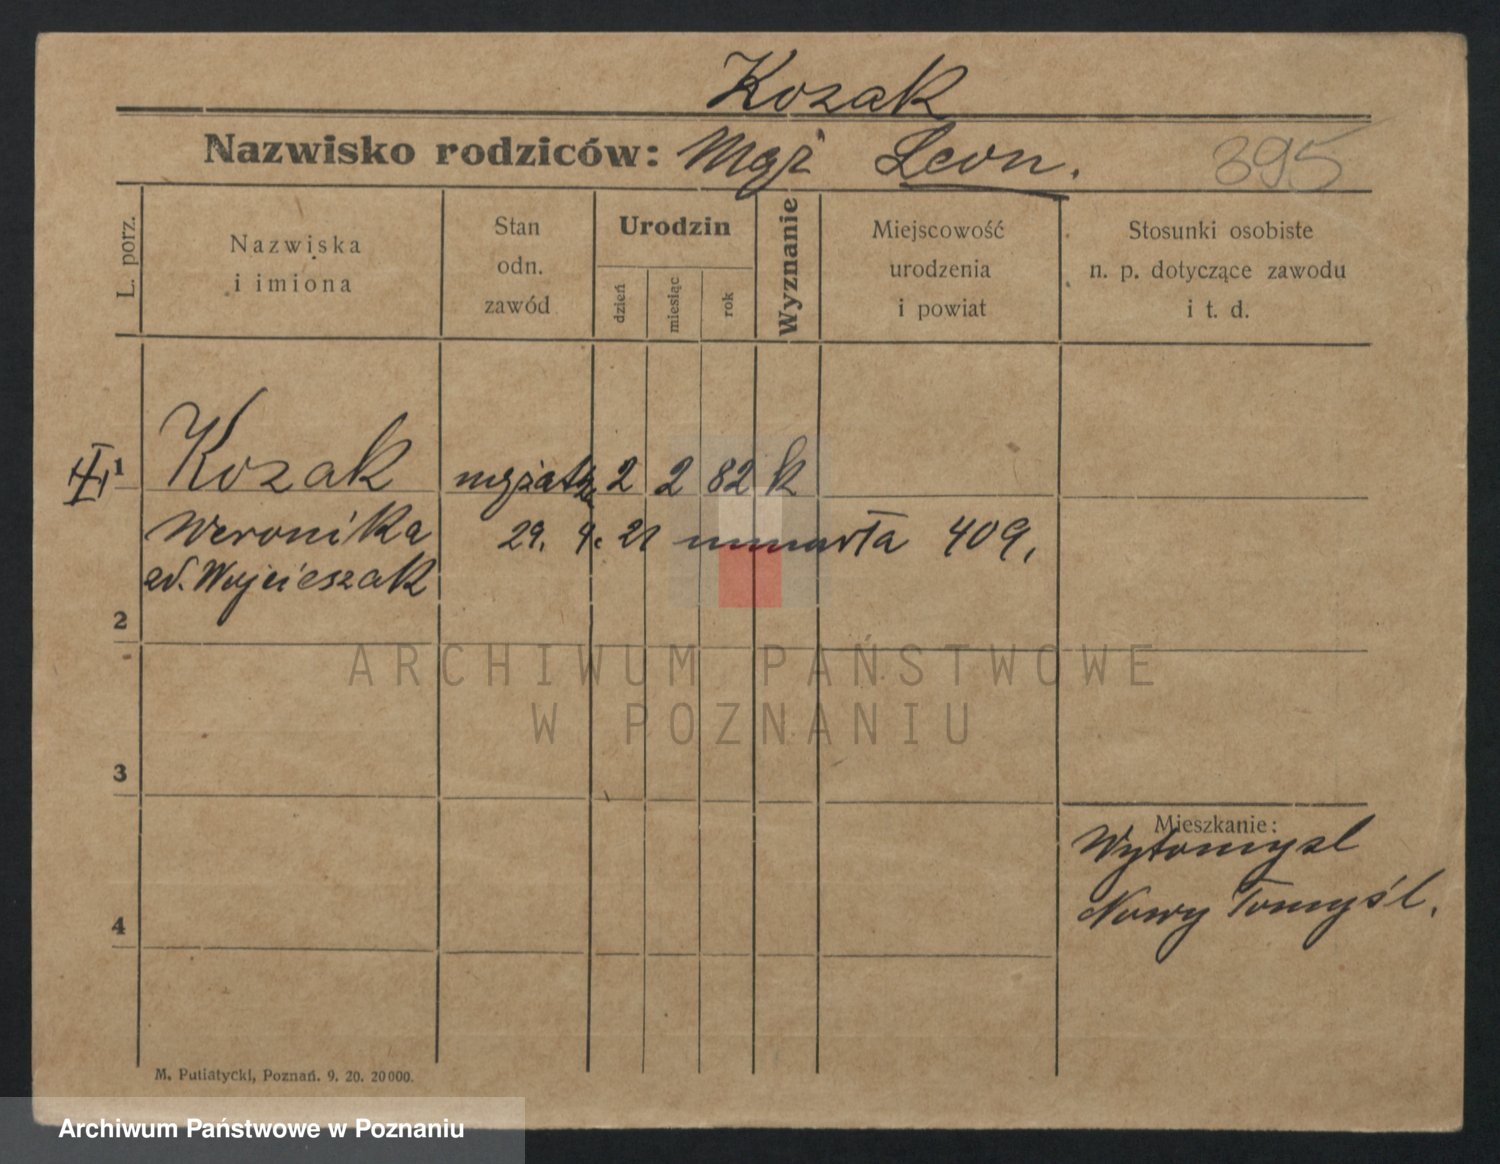 Kozak
Nazwisko rodziców: Mąż Leon.
395
L. porz.
Nazwiska
i imiona
Stan
odn.
zawód
Urodzin
dzień
miesiąc
rok
Wyznanie
Miejscowość
urodzenia
i powiat
Stosunki osobiste
n. p. dotyczące zawodu
i t. d.
1 Kozak 2 2 82 k
Weronika 29. 9. 21 umarła 409.
Wojcieszak
2
ARCHIWUM PAŃSTWOWE
W POZNANIU
3
Mieszkanie:
Wytomyśl
Nowy Tomyśl.
4
M. Putiatycki, Poznań. 9. 20. 20000.
Archiwum Państwowe w Poznaniu